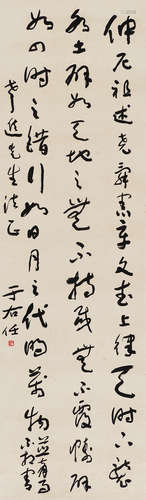 仲尼祖述堯舜憲章文武上律天時下襲
水土辟如天地之無不持載無不覆幬辟
如四時之錯行如日月之代明萬物並育而
不相害
進先生法正
于右任